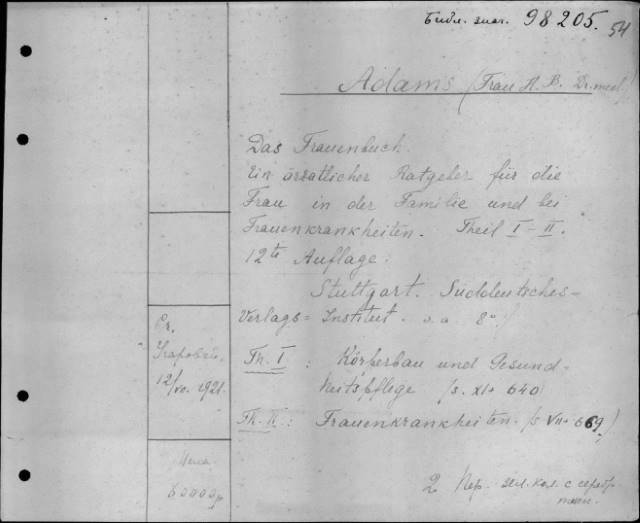 Библ. знач. 98205.
54
Adams (Frau H. B. Dr. med.)
Das Frauenbuch.
Ein ärzatlicher Ratgeber für die
Frau in der Familie und bei
Frauenkrankheiten. Theil I-II.
12te Auflage.
Stuttgart. Süddeutsches-
Verlags=Institut. o. a. 8°.
Th. I: Körperbau und Gesund-
heitspflege (s. XI+ 640)
Th. II.: Frauenkrankheiten. (s VII+ 669.)
12/IV. 1921.
Цена
60000р
2 Пер. зел. кол. с серебр.
тисн.